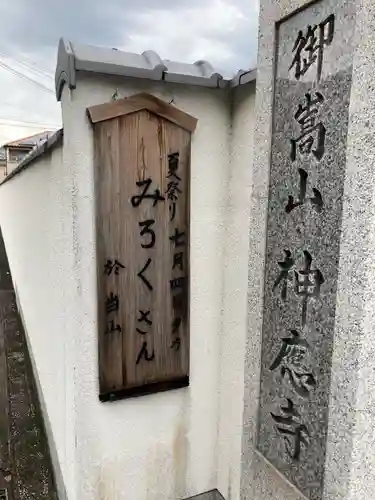 御嵩山神應寺
夏祭り七月四日夕方
みろくさん
於当山